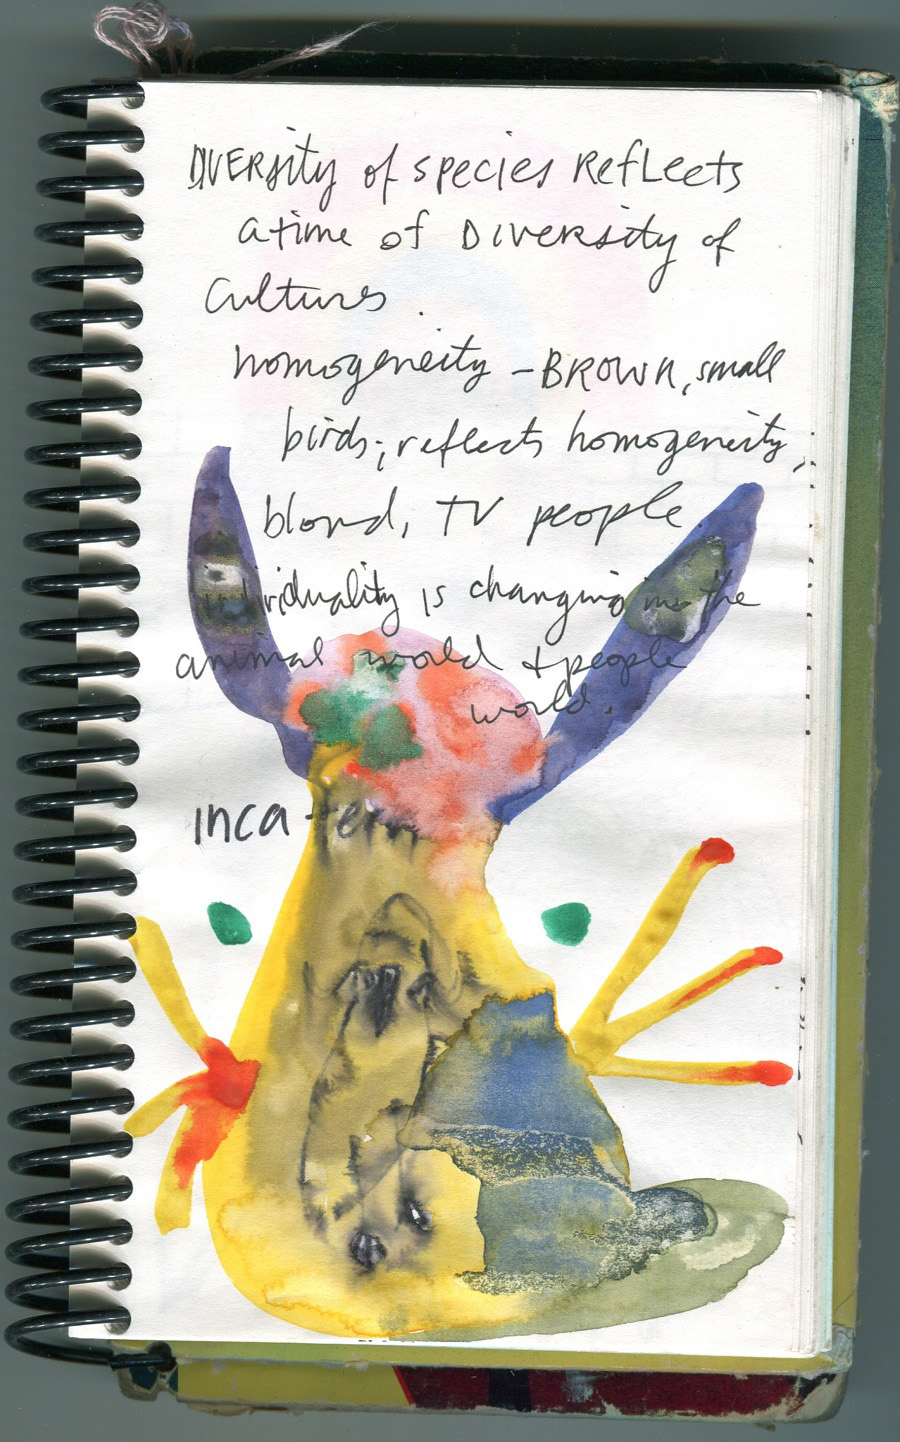 DIVERsity of species ReFLects
a time of DIVERsity of
Cultures.
homogeneity – BROWN, small
birds; reflects homogeneity,
blond, TV people
individuality is changing in the
animal world + people
world.
Inca